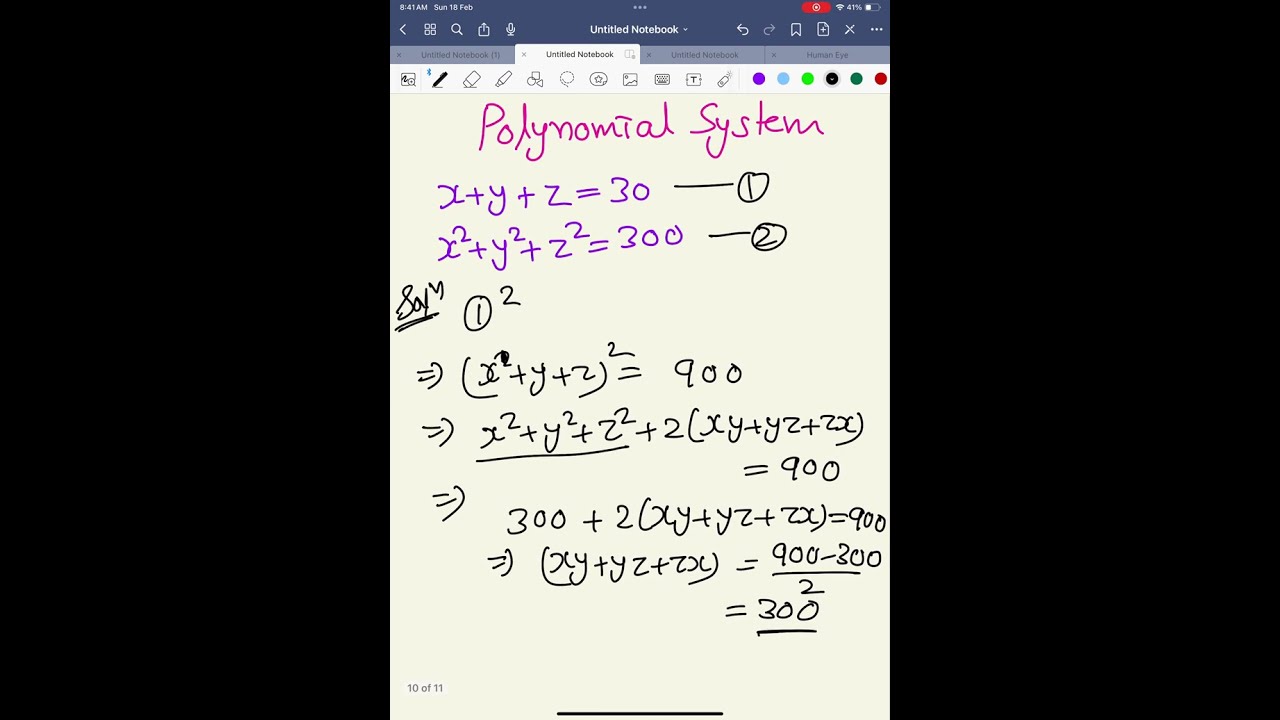 8:41AM Sun 18 Feb 41%
Untitled Notebook
Untitled Notebook (1) Untitled Notebook Untitled Notebook Human Eye
Polynomial System
x+y+z=30 —①
x²+y²+z²=300 —②
Solⁿ ①²
⇒ (x²+y+z)² = 900
⇒ x²+y²+z²+2(xy+yz+zx)
= 900
⇒
300 + 2(xy+yz+zx)=900
⇒ (xy+yz+zx) = (900-300)/2
= 300
10 of 11